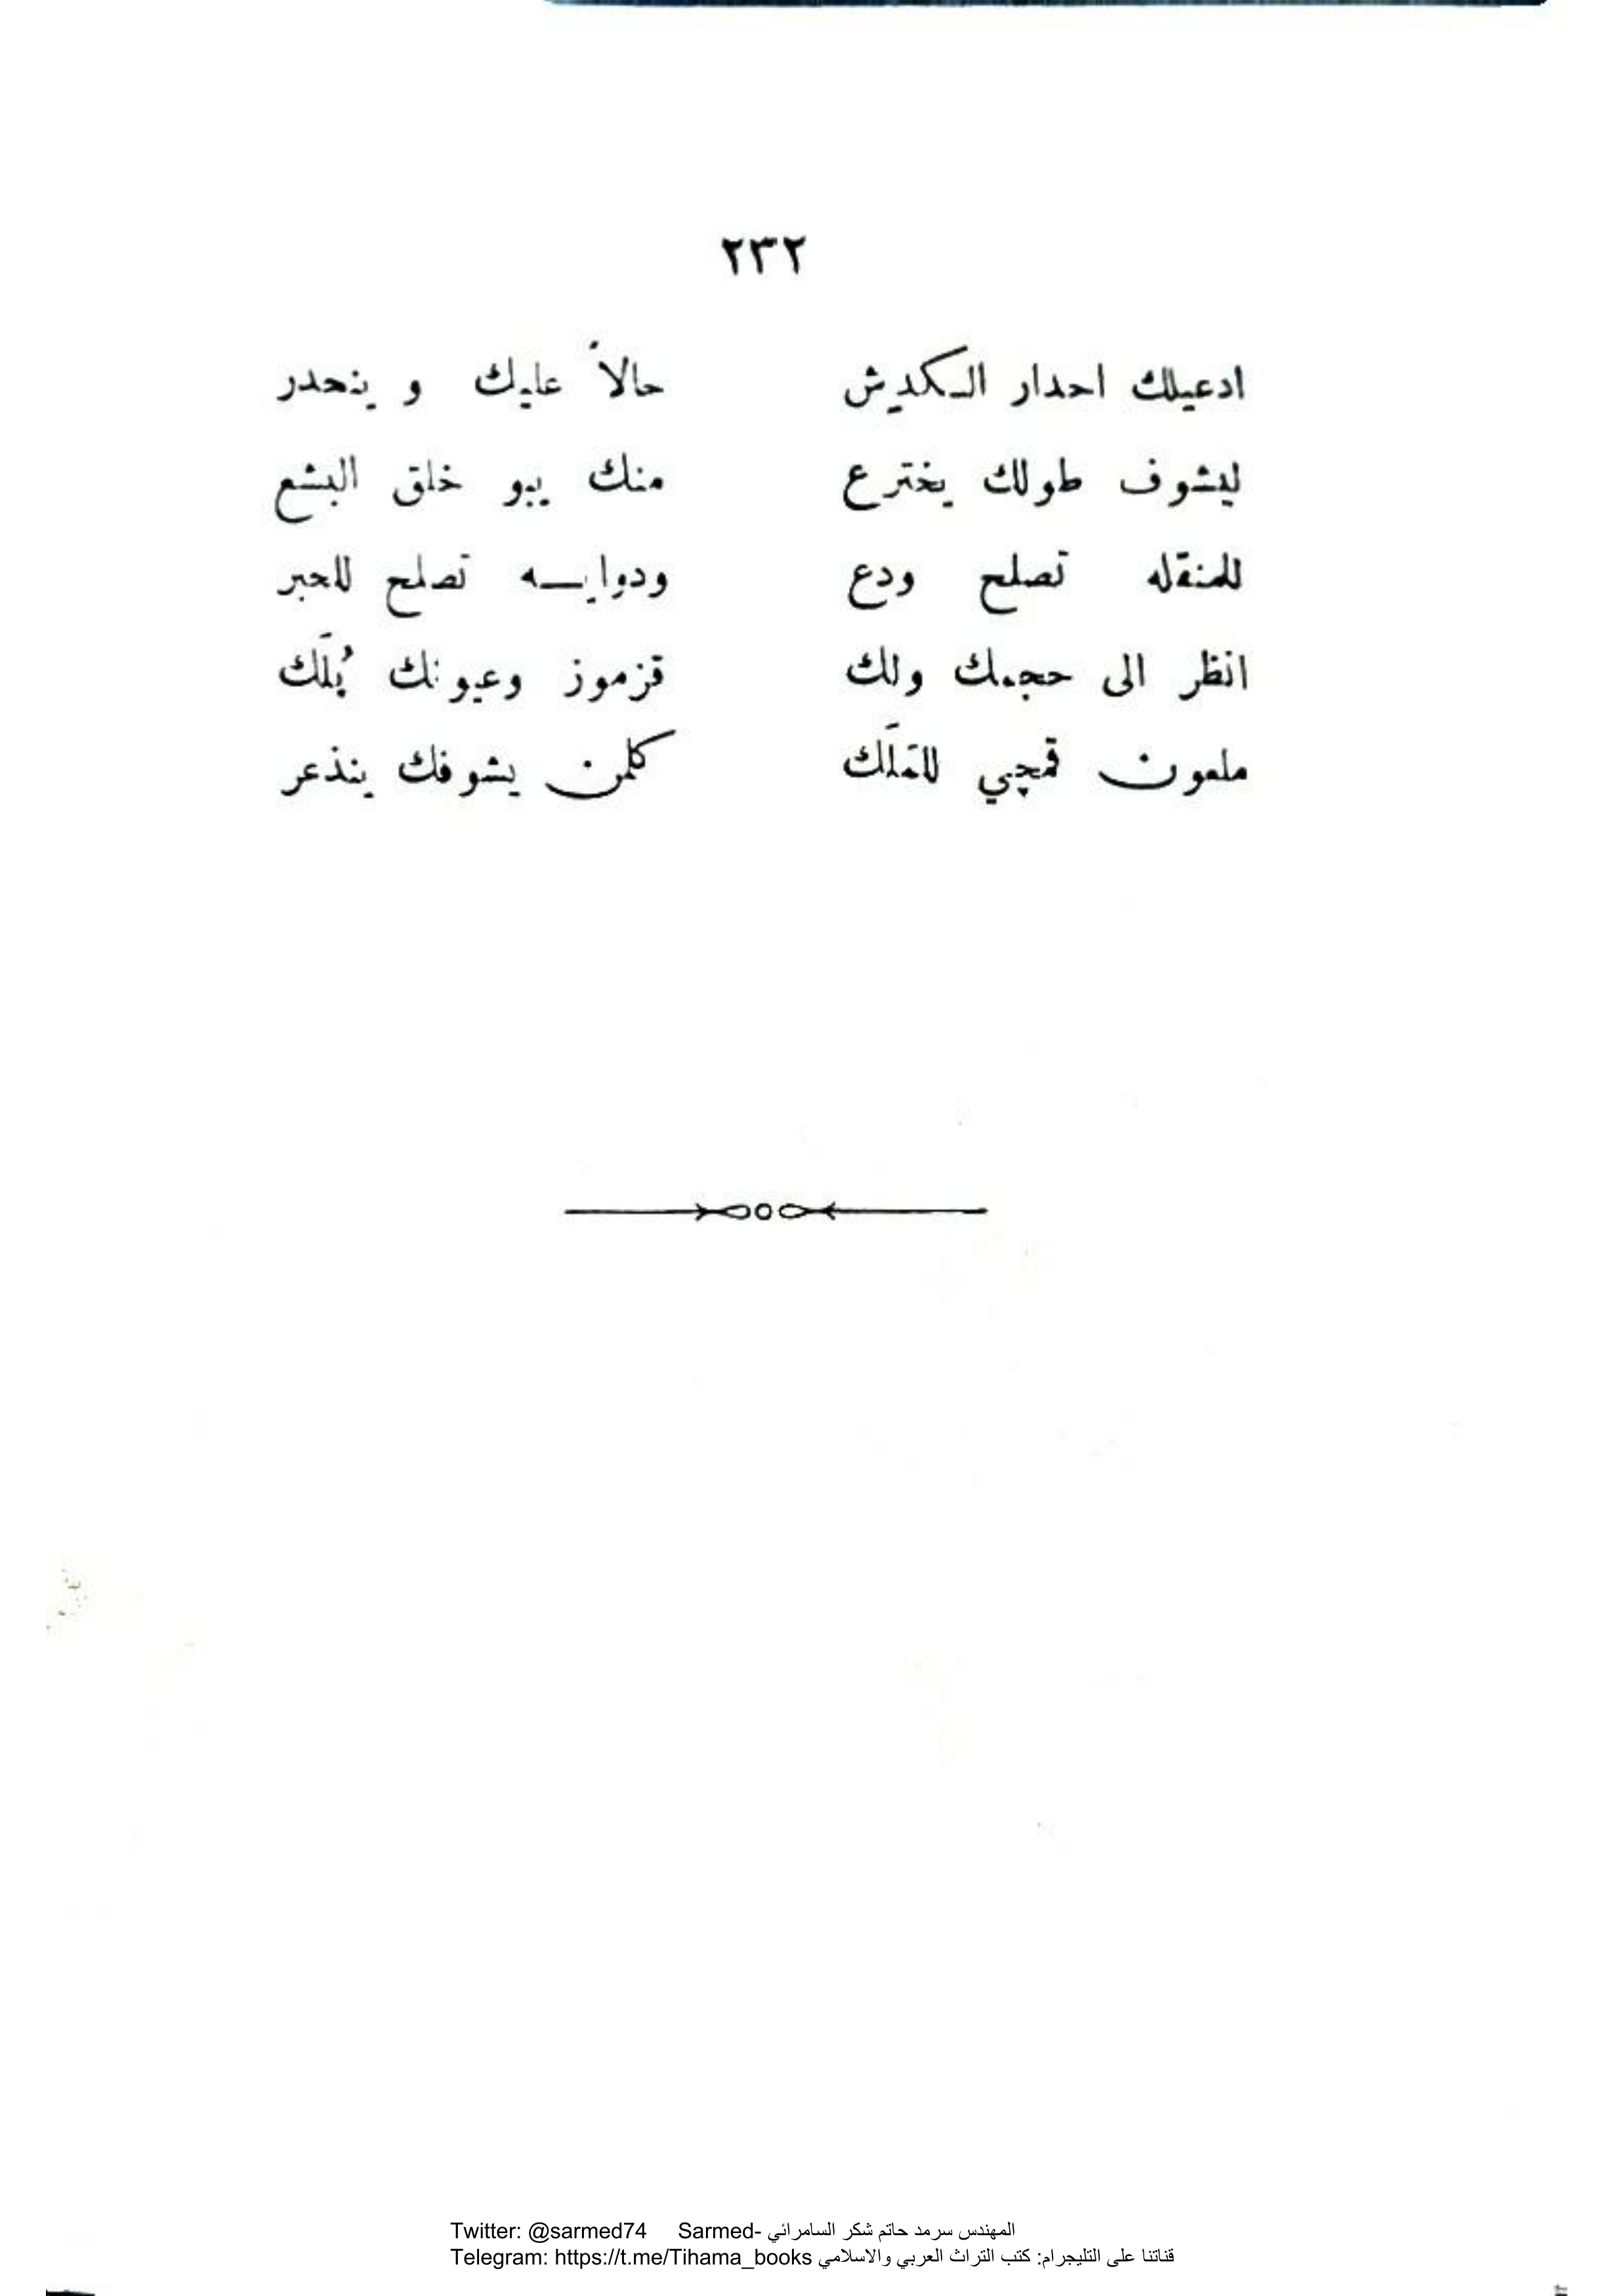 ٢٣٢
ادعيلك احدار الكديش حالاً عليك و ينحدر
ليشوف طولك يخترع منك يبو خلق البشع
للمنقله تصلح ودع ودوايـــه تصلح للحبر
انظر الى حجمك ولك قزموز وعيونك بُلَك
ملعون قمچي للفَلَك كلمن يشوفك ينذعر
Twitter: @sarmed74 Sarmed- المهندس سرمد حاتم شكر السامرائي
Telegram: https://t.me/Tihama_books قناتنا على التليجرام: كتب التراث العربي والاسلامي